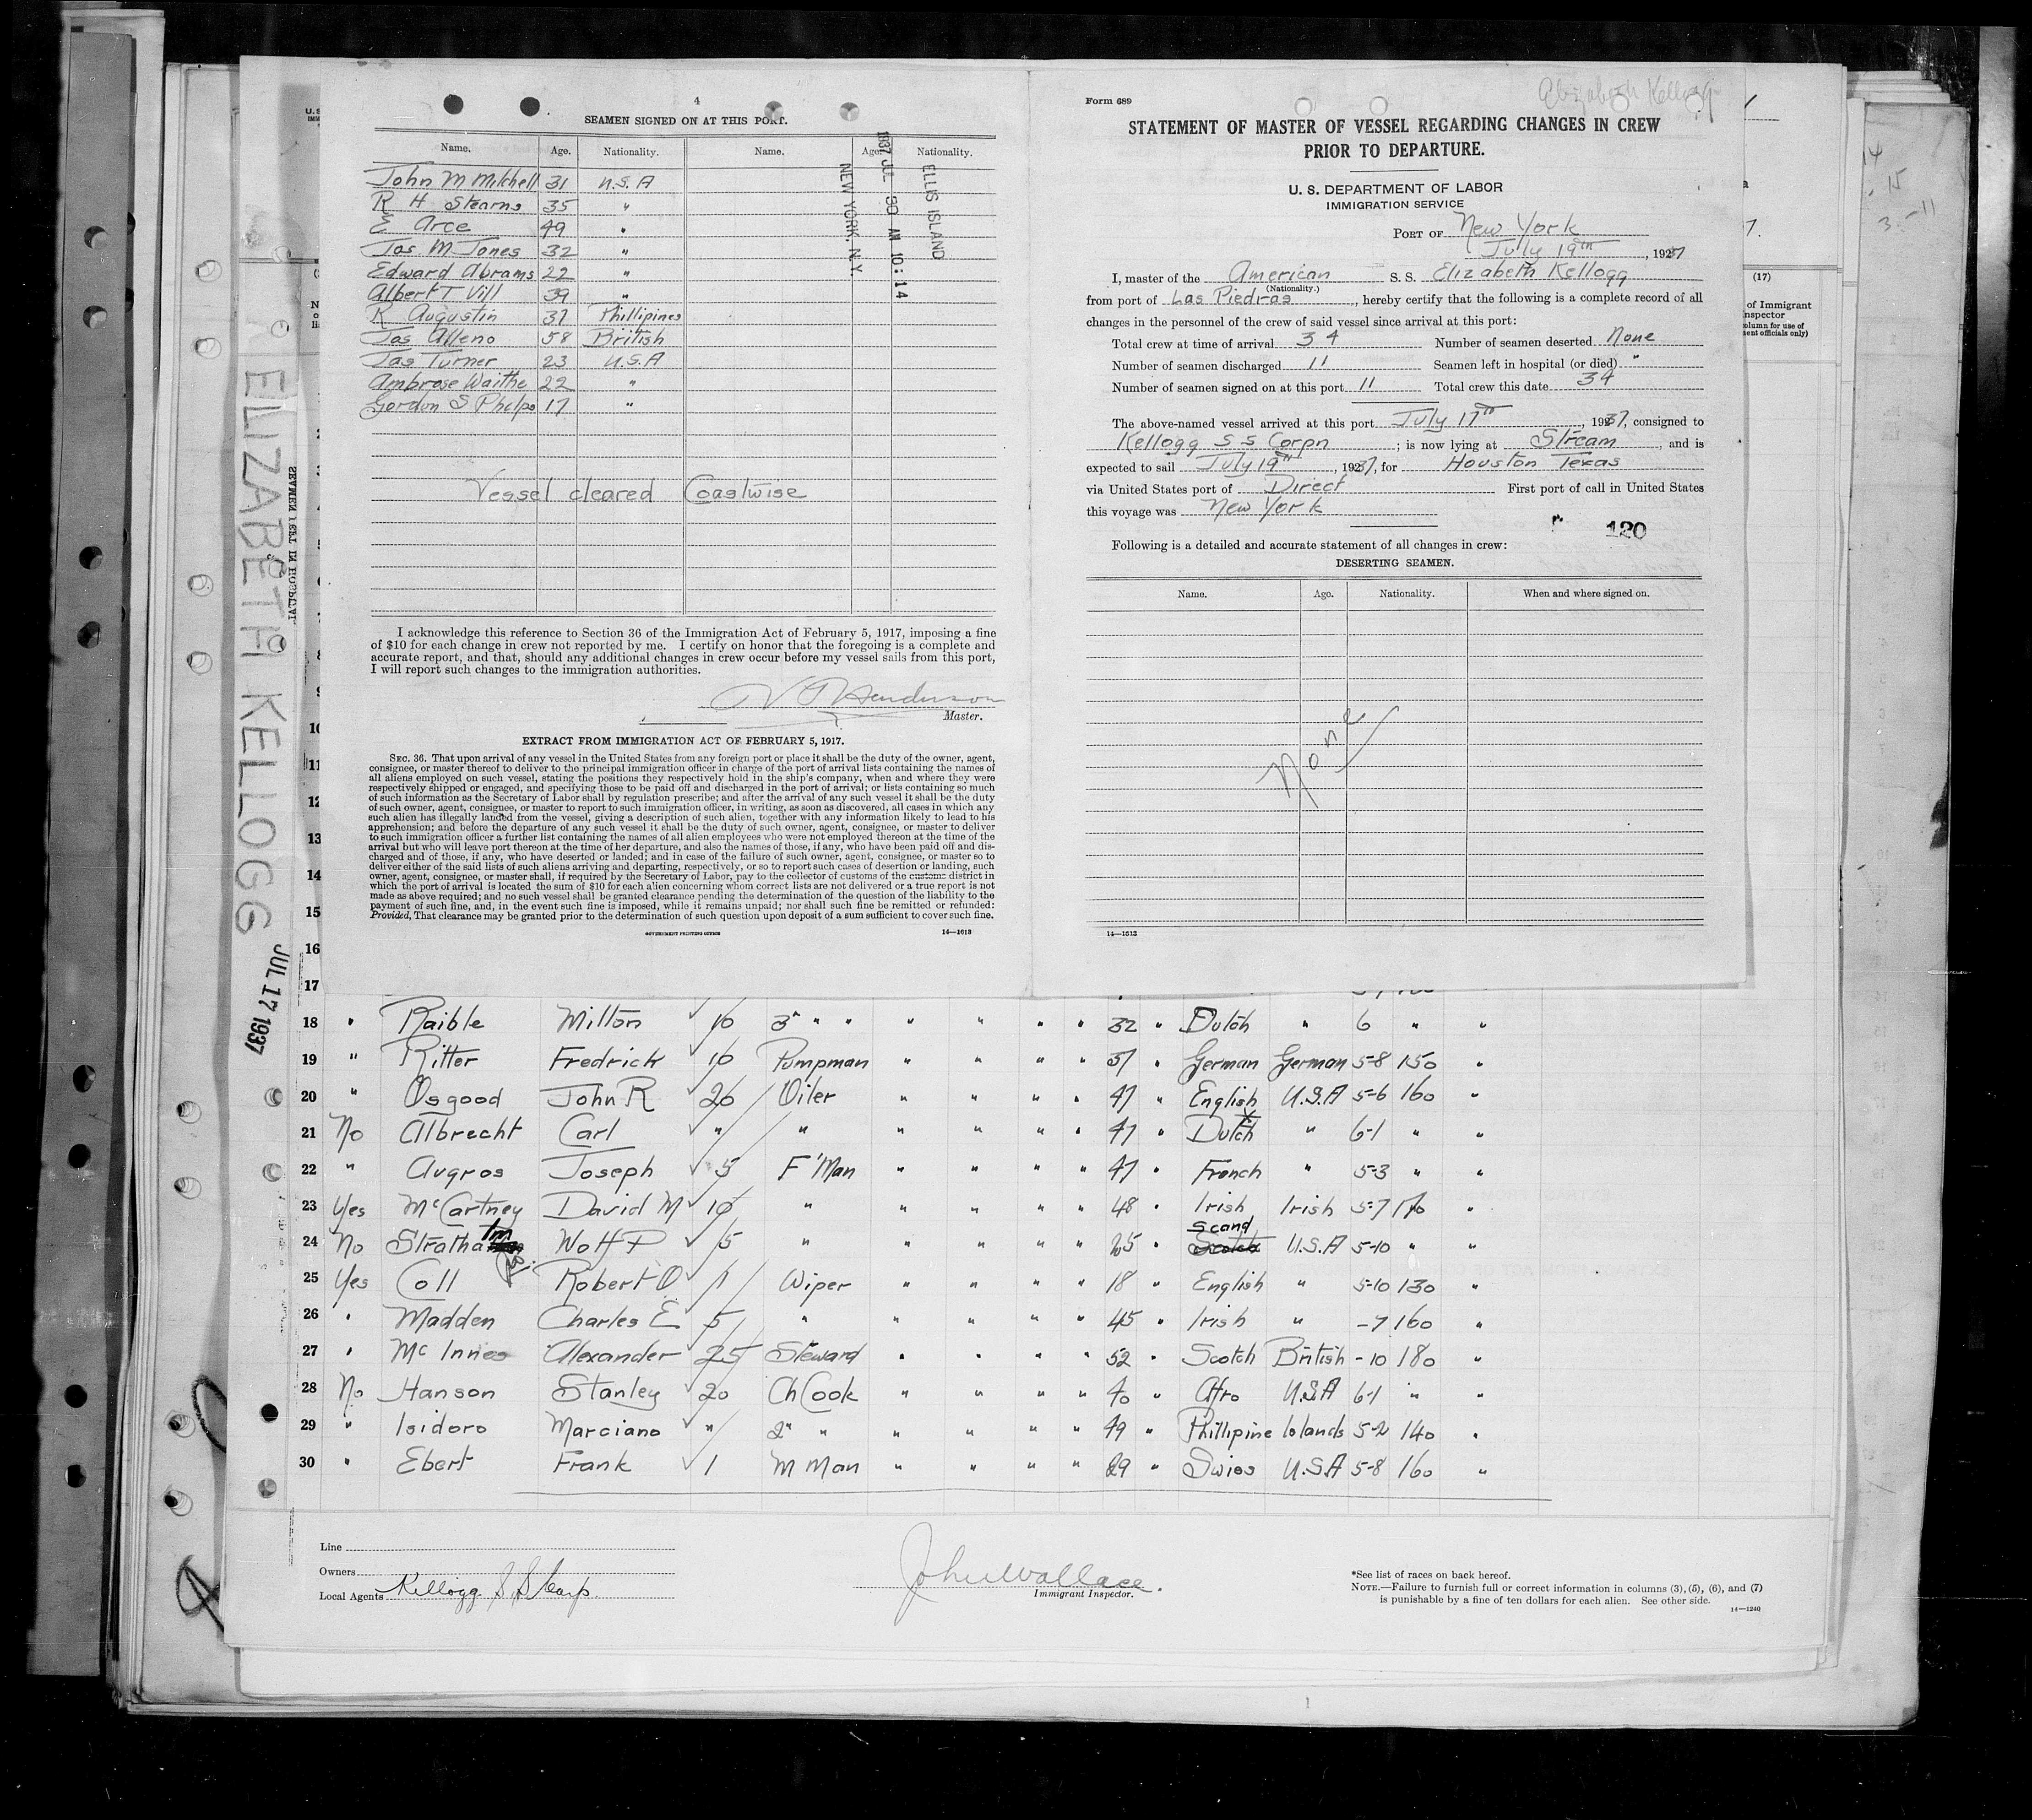 4
SEAMEN SIGNED ON AT THIS PORT.
Name. Age. Nationality. Name. Age. Nationality.
John M Mitchell 31 U.S.A
R H Stearns 35 "
E Arce 49 "
Jas M Jones 32 "
Edward Abrams 22 "
Albert T Vill 39 "
R Augustin 37 Phillipines
Jas Alleno 58 British
Jas Turner 23 U.S.A
Ambrose Waithe 22 "
Gordon S Phelps 17 "
Vessel cleared Coastwise
NEW YORK, N.Y.
1937 JUL 30 AM 10:14
ELLIS ISLAND
I acknowledge this reference to Section 36 of the Immigration Act of February 5, 1917, imposing a fine
of $10 for each change in crew not reported by me. I certify on honor that the foregoing is a complete and
accurate report, and that, should any additional changes in crew occur before my vessel sails from this port,
I will report such changes to the immigration authorities.
Henderson
Master.
EXTRACT FROM IMMIGRATION ACT OF FEBRUARY 5, 1917.
SEC. 36. That upon arrival of any vessel in the United States from any foreign port or place it shall be the duty of the owner, agent,
consignee, or master thereof to deliver to the principal immigration officer in charge of the port of arrival lists containing the names of
all aliens employed on such vessel, stating the positions they respectively hold in the ship's company, when and where they were
respectively shipped or engaged, and specifying those to be paid off and discharged in the port of arrival; or lists containing so much
of such information as the Secretary of Labor shall by regulation prescribe; and after the arrival of any such vessel it shall be the duty
of such owner, agent, consignee, or master to report to such immigration officer, in writing, as soon as discovered, all cases in which any
such alien has illegally landed from the vessel, giving a description of such alien, together with any information likely to lead to his
apprehension; and before the departure of any such vessel it shall be the duty of such owner, agent, consignee, or master to deliver
to such immigration officer a further list containing the names of all alien employees who were not employed thereon at the time of the
arrival but who will leave port thereon at the time of her departure, and also the names of those, if any, who have been paid off and dis-
charged and of those, if any, who have deserted or landed; and in case of the failure of such owner, agent, consignee, or master so to
deliver either of the said lists of such aliens arriving and departing, respectively, or so to report such cases of desertion or landing, such
owner, agent, consignee, or master shall, if required by the Secretary of Labor, pay to the collector of customs of the customs district in
which the port of arrival is located the sum of $10 for each alien concerning whom correct lists are not delivered or a true report is not
made as above required; and no such vessel shall be granted clearance pending the determination of the question of the liability to the
payment of such fine, and, in the event such fine is imposed, while it remains unpaid; nor shall such fine be remitted or refunded:
Provided, That clearance may be granted prior to the determination of such question upon deposit of a sum sufficient to cover such fine.
GOVERNMENT PRINTING OFFICE 14—1613
Elizabeth Kellogg
Form 689
STATEMENT OF MASTER OF VESSEL REGARDING CHANGES IN CREW
PRIOR TO DEPARTURE.
U. S. DEPARTMENT OF LABOR
IMMIGRATION SERVICE
PORT OF New York
July 19th, 1937
I, master of the American S. S. Elizabeth Kellogg
(Nationality.)
from port of Las Piedras, hereby certify that the following is a complete record of all
changes in the personnel of the crew of said vessel since arrival at this port:
Total crew at time of arrival 34 Number of seamen deserted None
Number of seamen discharged 11 Seamen left in hospital (or died) "
Number of seamen signed on at this port 11 Total crew this date 34
The above-named vessel arrived at this port July 17th, 1937, consigned to
Kellogg S S Corpn; is now lying at Stream, and is
expected to sail July 19th, 1937, for Houston Texas
via United States port of Direct First port of call in United States
this voyage was New York
120
Following is a detailed and accurate statement of all changes in crew:
DESERTING SEAMEN.
Name. Age. Nationality. When and where signed on.
None
14—1613
(17)
of Immigrant
ELIZABETH KELLOGG
JUL 17 1937
SEAMEN LEFT IN HOSPITAL
11
12
13
14
15
16
17
18 " Raible Milton 10 3" " " " " " " 32 " Dutch " 6 " "
19 " Ritter Fredrick 10 Pumpman " " " " 37 " German German 5-8 150 "
20 " Osgood John R 20 Oiler " " " " 47 " English U.S.A 5-6 160 "
21 No Albrecht Carl " " " " " " 47 " Dutch " 6-1 " "
22 " Augros Joseph 5 F'Man " " " " 47 " French " 5-3 " "
23 Yes McCartney David M 10 " " " " " 48 " Irish Irish 5-7 170 "
24 No Stratha 5 " " " " " 25 " Scand U.S.A 5-10 " "
25 Yes Coll Robert O 1 Wiper " " " " 18 " English " 5-10 130 "
26 " Madden Charles E 5 " " " " " 45 " Irish " -7 160 "
27 " Mc Innes Alexander 25 Steward " " " " 52 " Scotch British -10 180 "
28 No Hanson Stanley 20 Ch Cook " " " " 40 " Afro U.S.A 6-1 " "
29 " Isidoro Marciano " 2" " " " " " 49 " Phillipine Islands 5-2 140 "
30 " Ebert Frank 1 M Man " " " " 29 " Swiss U.S.A 5-8 160 "
Line
Owners
Local Agents Kellogg S S Corp.
John Wallace.
Immigrant Inspector.
*See list of races on back hereof.
NOTE.—Failure to furnish full or correct information in columns (3), (5), (6), and (7)
is punishable by a fine of ten dollars for each alien. See other side.
14—1240